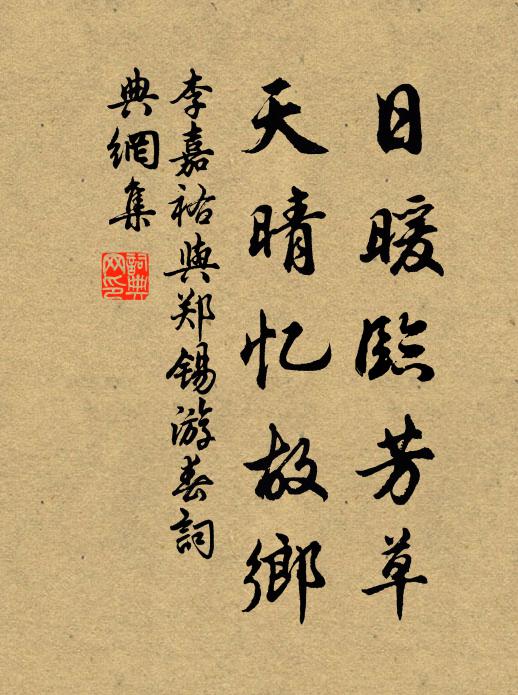 日暖臨芳草
天晴忆故鄉
李嘉祐與郑锡游春詞
典網集
詞典网印